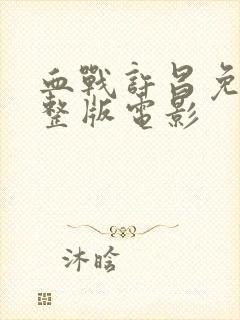 血戰許昌免
整版電影
沐晗